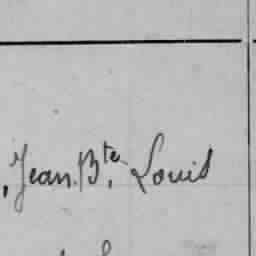 , Jean. Bte. Louis